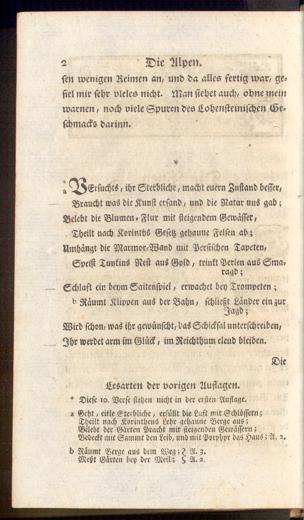 2 Die Alpen.
sen wenigen Reimen an, und da alles fertig war, ge-
fiel mir sehr vieles nicht. Man siehet auch, ohne mein
warnen, noch viele Spuren des Lohensteinischen Ge-
schmacks darinn.
*
a VErsuchts, ihr Sterbliche, macht euern Zustand besser,
Braucht was die Kunst erfand, und die Natur uns gab;
Belebt die Blumen-Flur mit steigendem Gewässer,
Theilt nach Korinths Gesetz gehaune Felsen ab;
Umhängt die Marmor-Wand mit Persischen Tapeten,
Speist Tunkins Nest aus Gold, trinkt Perlen aus Sma-
ragd;
Schlaft ein beym Saitenspiel, erwachet bey Trompeten;
b Räumt Klippen aus der Bahn, schließt Länder ein zur
Jagd;
Wird schon, was ihr gewünscht, das Schicksal unterschreiben,
Ihr werdet arm im Glück, im Reichthum elend bleiben.
Die
Lesarten der vorigen Auflagen.
* Diese 10. Verse stehen nicht in der ersten Auflage.
a Geht, eitle Sterbliche, erfüllt die Luft mit Schlössern;
Theilt nach Korinthens Lehr gehaune Berge aus;
Belebt der Gärten Pracht mit steigenden Gewässern;
Bedeckt mit Sammt den Leib, und mit Porphyr das Haus; A. 2.
b Räumt Berge aus dem Weg; } A. 3.
Meßt Gärten bey der Meil; } A. 2.